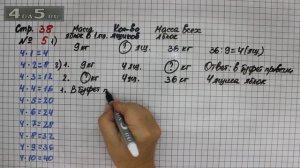 4.OS.RU
Стр. 38
№ 5 1)
4 · 1 = 4
4 · 2 = 8
4 · 3 = 12
4 · 4 = 16
4 · 5 = 20
4 · 6 = 24
4 · 7 = 28
4 · 8 = 32
4 · 9 = 36
4 · 10 = 40
Масса яблок в 1 ящ. Кол-во ящиков Масса всех яблок
9 кг ? ящ. 36 кг
2) 1. 9 кг 4 ящ. ? кг
2. ? кг 4 ящ. 36 кг
1. В буфет
36 : 9 = 4 (ящ)
Ответ: в буфет привезли
4 ящика яблок